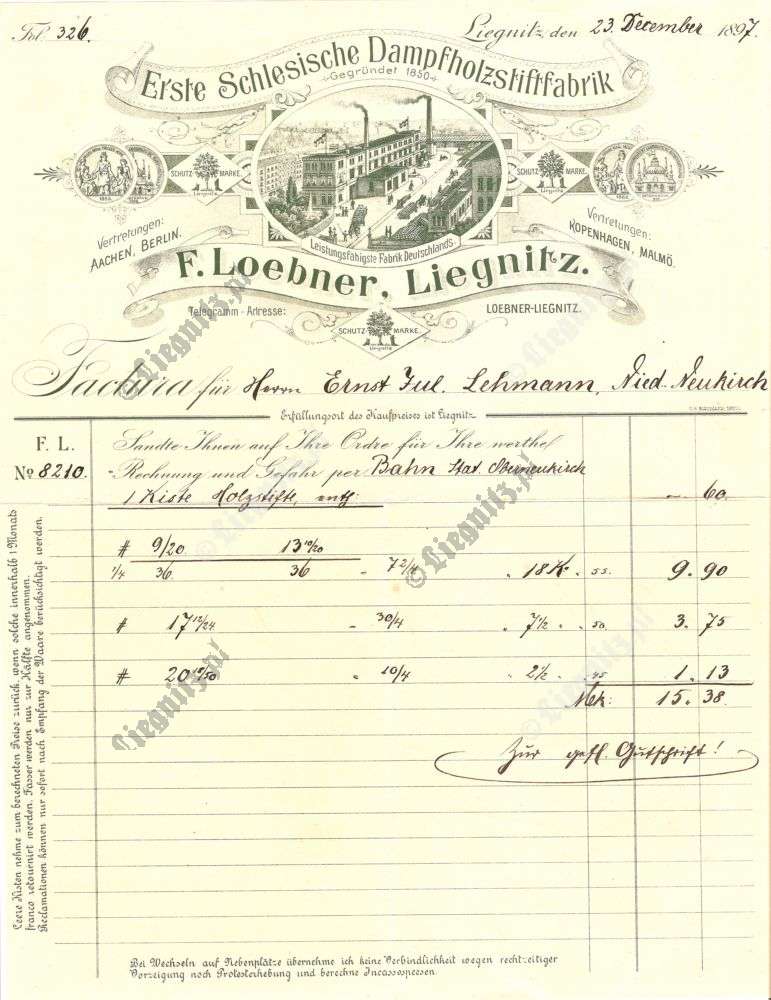 Fol. 326.
Liegnitz, den 23. December 1897.
Erste Schlesische Dampfholzstiftfabrik
Gegründet 1850
SCHUTZ MARKE.
Liegnitz
SCHUTZ MARKE.
Liegnitz
Vertretungen:
AACHEN, BERLIN.
Vertretungen:
KOPENHAGEN, MALMÖ.
Leistungsfähigste Fabrik Deutschlands
F. Loebner, Liegnitz.
Telegramm-Adresse:
LOEBNER-LIEGNITZ.
SCHUTZ MARKE.
Liegnitz
Factura für Herrn Ernst Jul. Lehmann, Nied. Neukirch
Erfüllungsort des Kaufpreises ist Liegnitz
F. L.
No 8210.
Sandte Ihnen auf Ihre Ordre für Ihre werthe
Rechnung und Gefahr per Bahn Stat. Oberneukirch
1 Kiste Holzstifte, enth: — 60.
# 9/20 13 10/20
1/4 36. 36 " 72/4 " 18 K. " 55. 9. 90
# 17 12/24 " 30/4 " 7 1/2 " " 50. 3. 75
# 20 10/50 " 10/4 " 2 1/2 " 45 1. 13
Mk: 15. 38.
Zur gefl. Gutschrift!
Leere Kisten nehme zum berechneten Preise zurück, wenn solche innerhalb 1 Monats
franco retournirt werden. Fässer werden nur zur Hälfte angenommen.
Reclamationen können nur sofort nach Empfang der Waare berücksichtigt werden.
Bei Wechseln auf Nebenplätze übernehme ich keine Verbindlichkeit wegen rechtzeitiger
Vorzeigung noch Protesterhebung und berechne Incassospesen.
© Liegnitz.pl
© Liegnitz.pl
© Liegnitz.pl
© Liegnitz.pl
© Liegnitz.pl
Liegnitz.pl